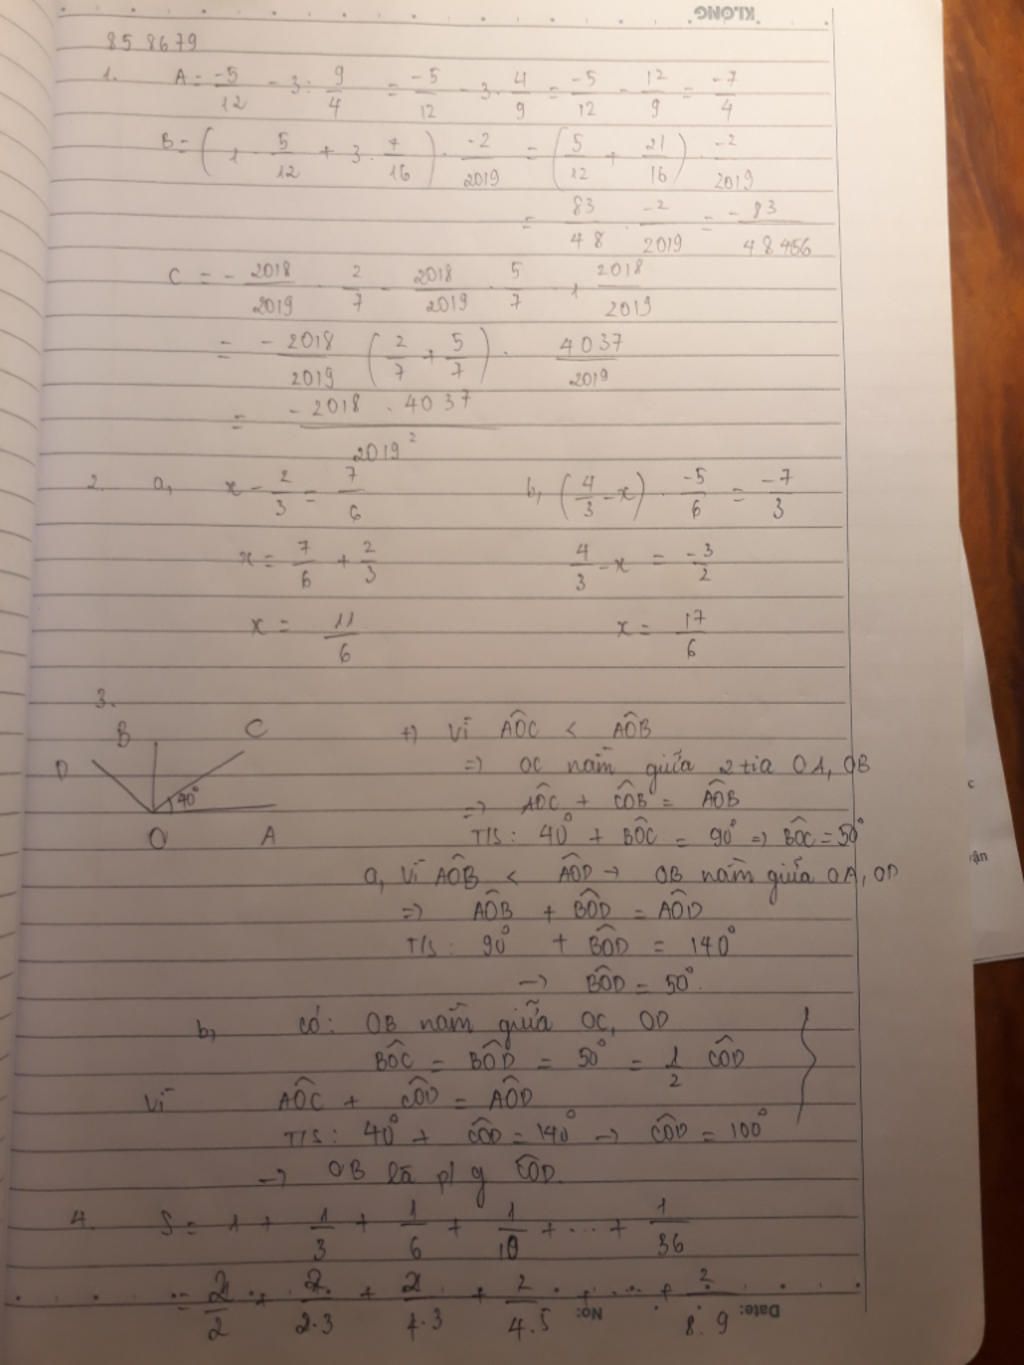 KLONG
858679
1. A = -5/12 - 3 : 9/4 = -5/12 - 3 . 4/9 = -5/12 - 12/9 = -7/4
B = (1 . 5/12 + 3 . 7/16) . -2/2019 = (5/12 + 21/16) . -2/2019
= 83/48 . -2/2019 = -83/48456
C = - 2018/2019 . 2/7 - 2018/2019 . 5/7 + 1 2018/2019
= -2018/2019 (2/7 + 5/7) . 4037/2019
= -2018 . 4037/2019²
2. a, x - 2/3 = 7/6 b, (4/3 - x) . -5/6 = -7/3
x = 7/6 + 2/3 4/3 - x = -3/2
x = 11/6 x = 17/6
3.
B C D 40° O A
+) Vì AÔC < AÔB
=> OC nằm giữa 2 tia OA, OB
=> AÔC + CÔB = AÔB
T/S: 40° + BÔC = 90° => BÔC = 50°
a, Vì AÔB < AÔD → OB nằm giữa OA, OD
=> AÔB + BÔD = AÔD
T/S: 90° + BÔD = 140°
→ BÔD = 50°.
b, Có: OB nằm giữa OC, OD
BÔC = BÔD = 50° = 1/2 CÔD
Vì AÔC + CÔD = AÔD
T/S: 40° + CÔD = 140° → CÔD = 100°
→ OB là p/g CÔD.
4. S = 1 + 1/3 + 1/6 + 1/10 + ... + 1/36
= 2/2 + 2/2.3 + 2/4.3 + 2/4.5 + ... + 2/8.9
No:
Date:
c